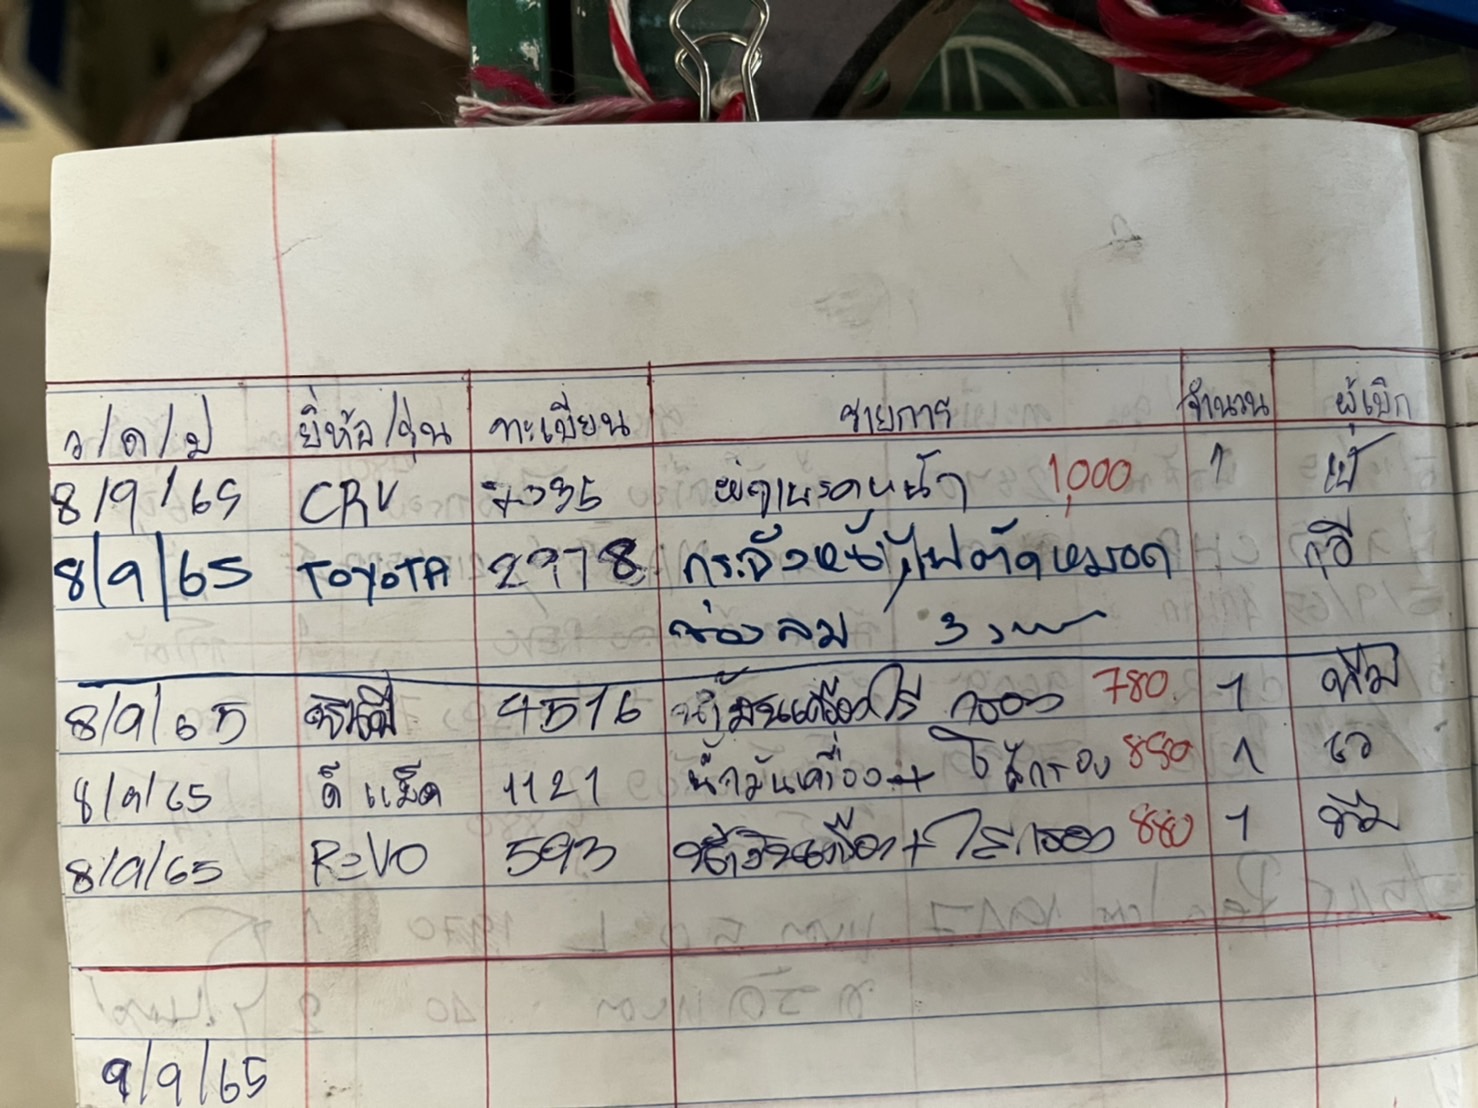 ว/ด/ป ยี่ห้อ/รุ่น ทะเบียน รายการ จำนวน ผู้เบิก
8/9/65 CRV 7335 ผ้าเบรคหน้า 1,000 1
8/9/65 TOYOTA 2978 กระจังหน้า, ไฟตัดหมอก
ช่องลม 3
8/9/65 4516 น้ำมันเครื่อง ไส้กรอง 780 1
8/9/65 ดีแม็ค 1121 น้ำมันเครื่อง + ไส้กรอง 880 1
8/9/65 REVO 593 น้ำมันเครื่อง + ไส้กรอง 880 1
9/9/65